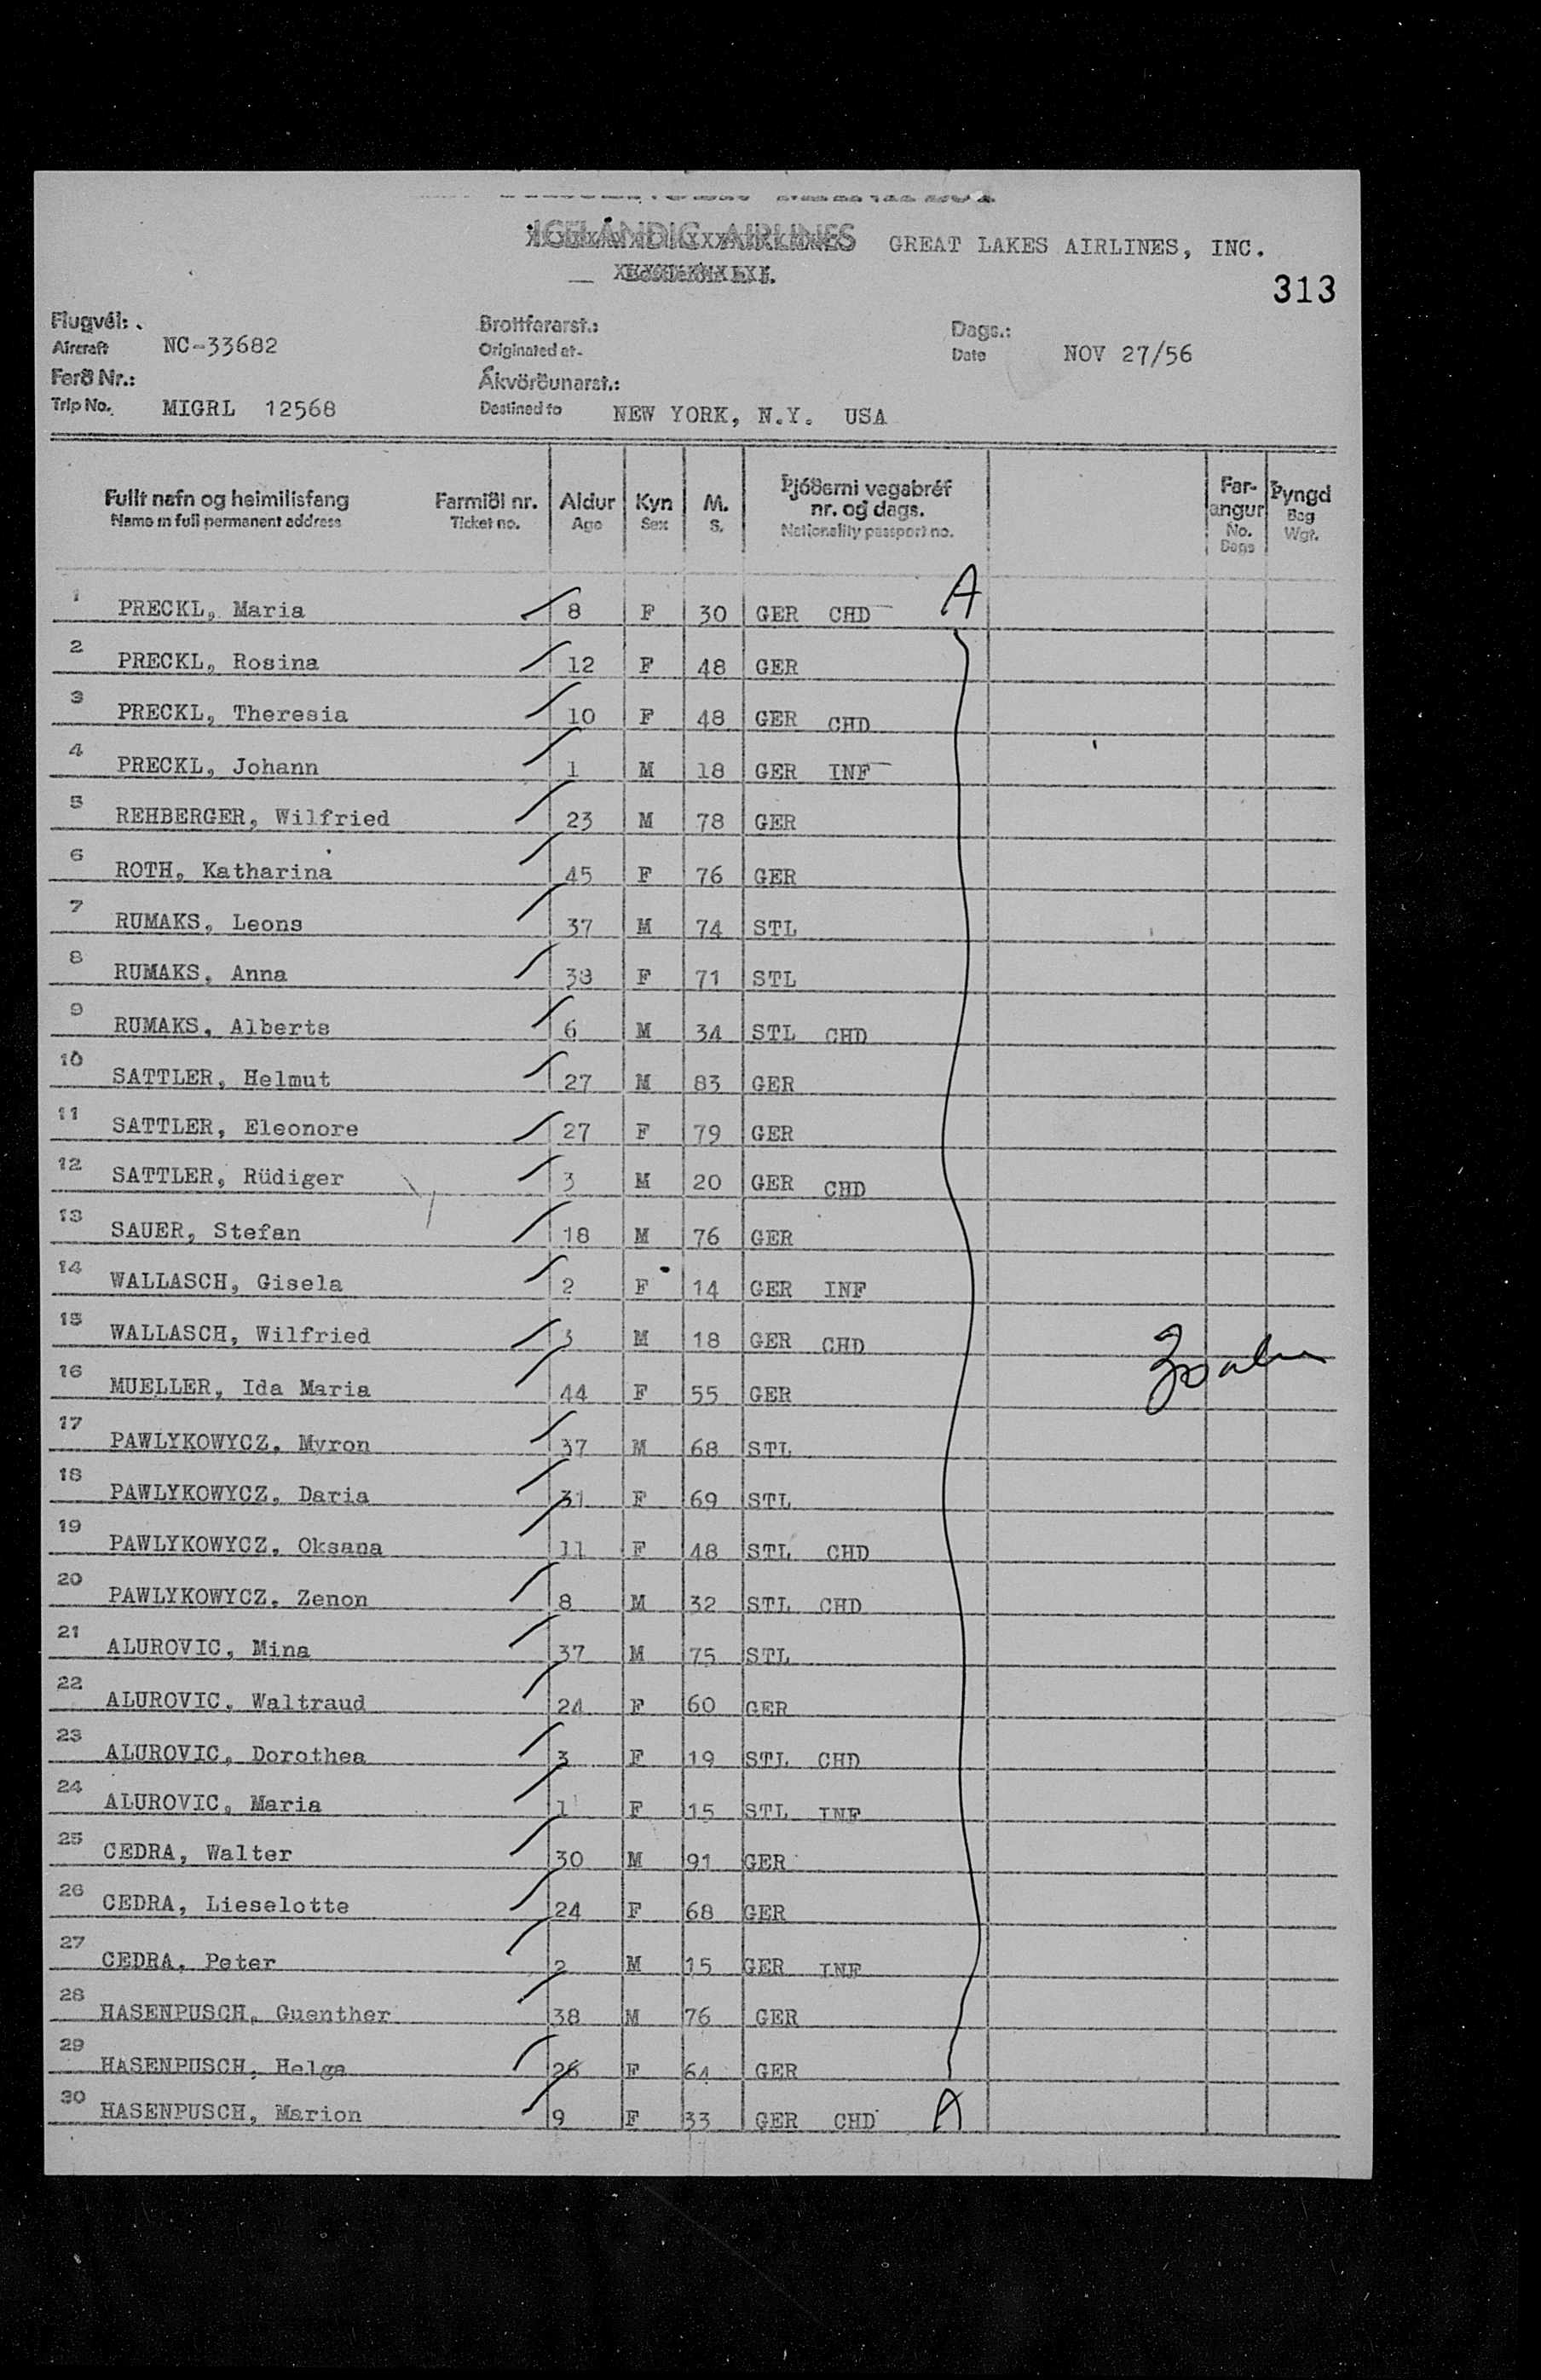 ICELANDIC AIRLINES GREAT LAKES AIRLINES, INC.
313
Flugvél:
Aircraft NC-33682
Brottfararst.:
Originated at
Dags.:
Date NOV 27/56
Ferð Nr.:
Trip No. MIGRL 12568
Ákvörðunarst.:
Destined to NEW YORK, N.Y. USA
Fullt nafn og heimilisfang Farmiði nr. Aldur Kyn M. Þjóðerni vegabréf nr. og dags. Far-angur Þyngd
Name in full permanent address Ticket no. Age Sex S. Nationality passport no. No. Bags Bag Wgt.
1 PRECKL, Maria 8 F 30 GER CHD A
2 PRECKL, Rosina 12 F 48 GER
3 PRECKL, Theresia 10 F 48 GER CHD
4 PRECKL, Johann 1 M 18 GER INF
5 REHBERGER, Wilfried 23 M 78 GER
6 ROTH, Katharina 45 F 76 GER
7 RUMAKS, Leons 37 M 74 STL
8 RUMAKS, Anna 38 F 71 STL
9 RUMAKS, Alberts 6 M 34 STL CHD
10 SATTLER, Helmut 27 M 83 GER
11 SATTLER, Eleonore 27 F 79 GER
12 SATTLER, Rüdiger 3 M 20 GER CHD
13 SAUER, Stefan 18 M 76 GER
14 WALLASCH, Gisela 2 F 14 GER INF
15 WALLASCH, Wilfried 3 M 18 GER CHD
16 MUELLER, Ida Maria 44 F 55 GER
17 PAWLYKOWYCZ, Myron 37 M 68 STL
18 PAWLYKOWYCZ, Daria 31 F 69 STL
19 PAWLYKOWYCZ, Oksana 11 F 48 STL CHD
20 PAWLYKOWYCZ, Zenon 8 M 32 STL CHD
21 ALUROVIC, Mina 37 M 75 STL
22 ALUROVIC, Waltraud 24 F 60 GER
23 ALUROVIC, Dorothea 3 F 19 STL CHD
24 ALUROVIC, Maria 1 F 15 STL INF
25 CEDRA, Walter 30 M 91 GER
26 CEDRA, Lieselotte 24 F 68 GER
27 CEDRA, Peter 2 M 15 GER INF
28 HASENPUSCH, Guenther 38 M 76 GER
29 HASENPUSCH, Helga 26 F 64 GER
30 HASENPUSCH, Marion 9 F 33 GER CHD A